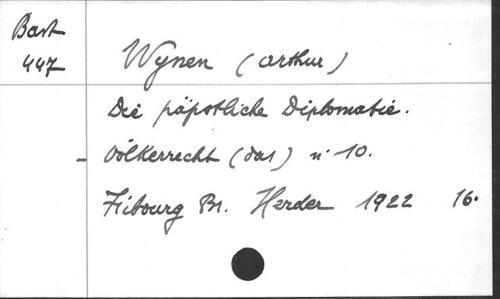 Bast
447
Wynen (Arthur)
Die päpstliche Diplomatie.
- Völkerrecht (das) n° 10.
Fibourg Br. Herder 1922 16°